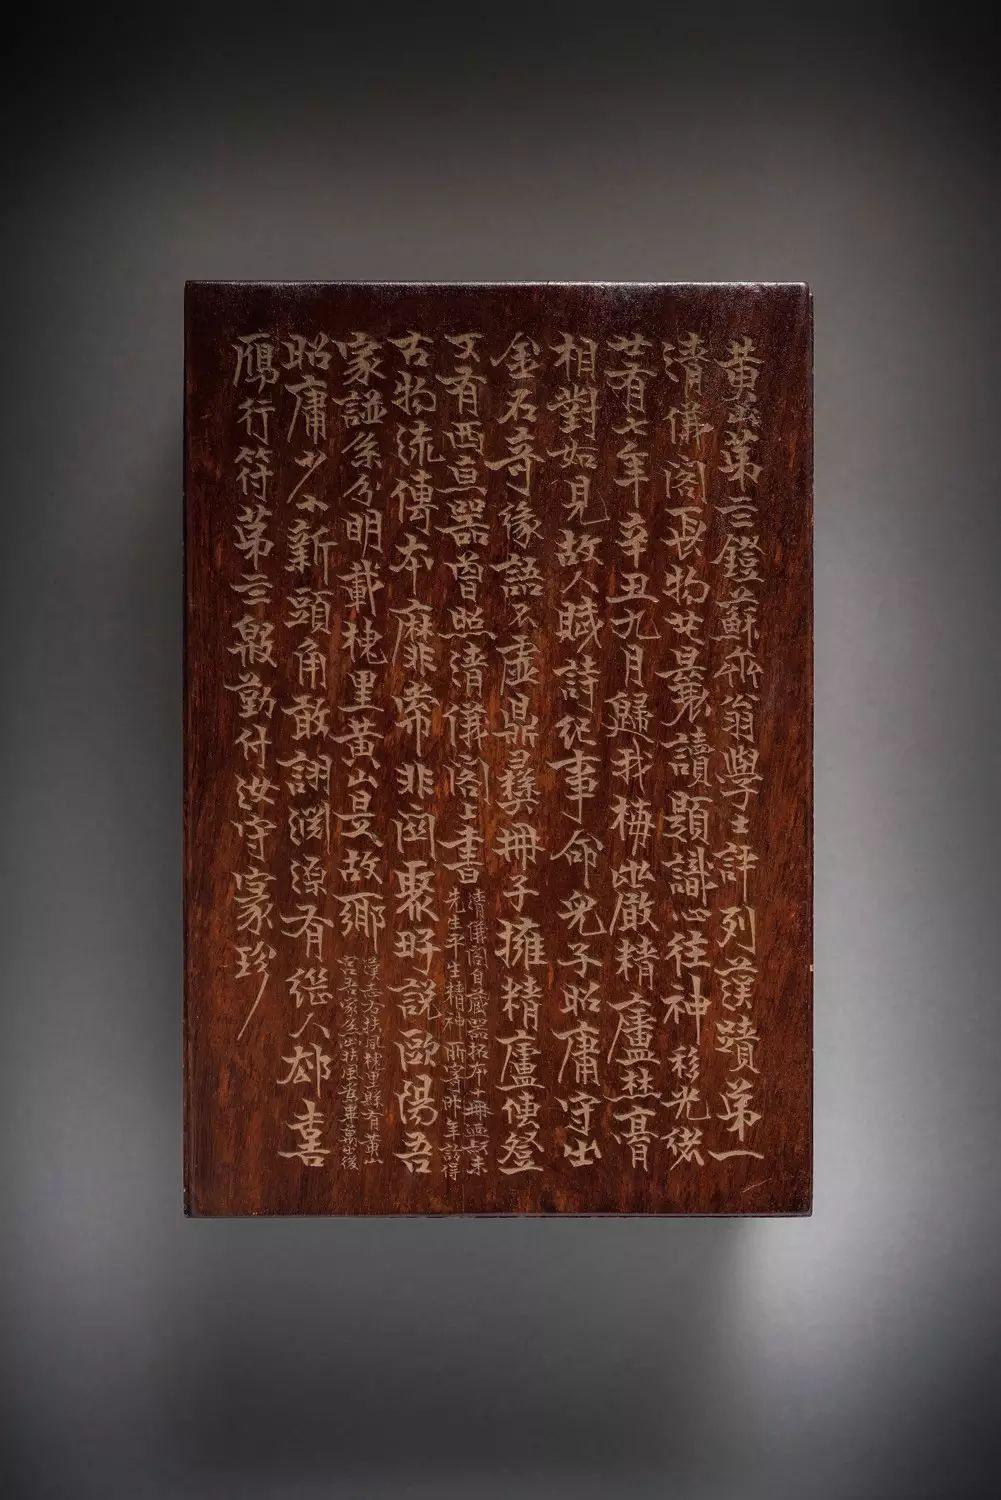 黄山第三鐙蘇齋翁學士評列漢蹟弟一
清儀閣長物廿㬌讀題識心往神移光緒
廿有七年辛丑九月歸我梅以嚴精廬枕膏
相對如見故人賦詩紀事命兒子昭庸守出
金石奇緣語不虛鼎彝冊子擁精廬便登
又有西直器曾照清儀閣上書
清儀閣自藏器拓本十冊延未
先生平生精神所寄昨年敍得
古物流傳本靡常非図聚好說歐陽吾
家譜系分明載槐里黄山是故鄉
漢志右扶風槐里縣有黄山
宮吾家系出扶風當畢萬之後
昭庸少小新頭角敢詡淵源有继人却喜
鴈行符第三報勤付汝守家珍